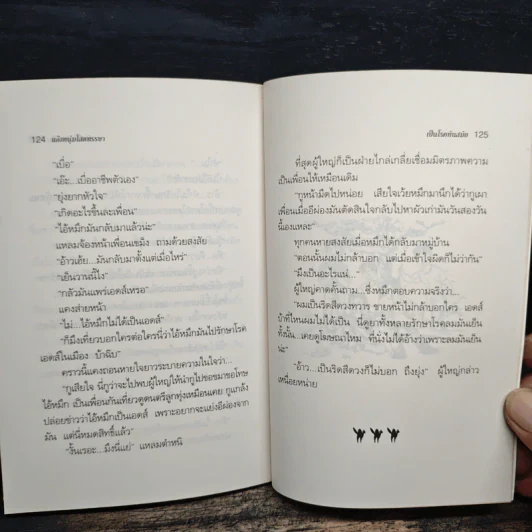 124
"เบื่อ"
"เอ๊ะ...เบื่ออาชีพตัวเอง"
"ยุ่งยากหัวใจ"
"เกิดอะไรขึ้นละเพื่อน"
"ไอ้หมึกมันกลับมาแล้วน่ะ"
แหลมจ้องหน้าเพื่อนเขม็ง ถามด้วยสงสัย
"อ้าวเฮ้ย...มันกลับมาตั้งแต่เมื่อไหร่"
"เย็นวานนี้ไง"
"กลัวมันแพร่เอดส์เหรอ"
แคงส่ายหน้า
"ไม่...ไอ้หมึกไม่ได้เป็นเอดส์"
"ก็มึงเที่ยวบอกใครต่อใครนี่ว่าไอ้หมึกมันไปรักษาโรค
เอดส์ในเมือง บ๊าฉิบ"
คราวนี้แคงถอนหายใจยาวระบายความในใจว่า...
"กูเสียใจ นี่กูว่าจะไปพบผู้ใหญ่ให้นำกูไปขอขมาขอโทษ
ไอ้หมึก เป็นเพื่อนกันเที่ยวดูดนตรีลูกทุ่งเหมือนเคย กูแกล้ง
ปล่อยข่าวว่าไอ้หมึกเป็นเอดส์ เพราะอยากจะแย่งอีผ่องจาก
มัน แต่นี่หมดสิทธิ์แล้ว"
"งั้นเรอะ...มึงนี่แย่" แหลมตำหนิ
เป็นโรคทันสมัย 125
ที่สุดผู้ใหญ่ก็เป็นฝ่ายไกล่เกลี่ยเชื่อมมิตรภาพความ
เป็นเพื่อนให้เหมือนเดิม
"กูหน้ามืดไปหน่อย เสียใจเว้ยหมึกมานึกได้ว่ากูเผา
เพื่อนเมื่ออีผ่องมันตัดสินใจกลับไปหาผัวเก่ามันวันสองวัน
นี้เองแหละ"
ทุกคนหายสงสัยเมื่อหมึกได้กลับมาหมู่บ้าน
"ตอนนั้นผมไม่กล้าบอก แต่เมื่อเข้าใจผิดก็ไม่ว่ากัน"
"มึงเป็นอะไรแน่..."
ผู้ใหญ่คาดคั้นถาม...ซึ่งหมึกตอบความจริงว่า...
"ผมเป็นริดสีดวงทวาร ขายหน้าไม่กล้าบอกใคร เอดส์
บ้าที่ไหนผมไม่ได้เป็น นี่ดูยาทั้งหลายรักษาโรคลมมันเย็น
ทั้งนั้น...เคยดูโฆษณาไหม ที่นั่งไม่ได้อ้างว่าเพราะลมมันเย็น
น่ะ"
"อ้าว...เป็นริดสีดวงก็ไม่บอก ถึงยุ่ง" ผู้ใหญ่กล่าว
เหนื่อยหน่าย